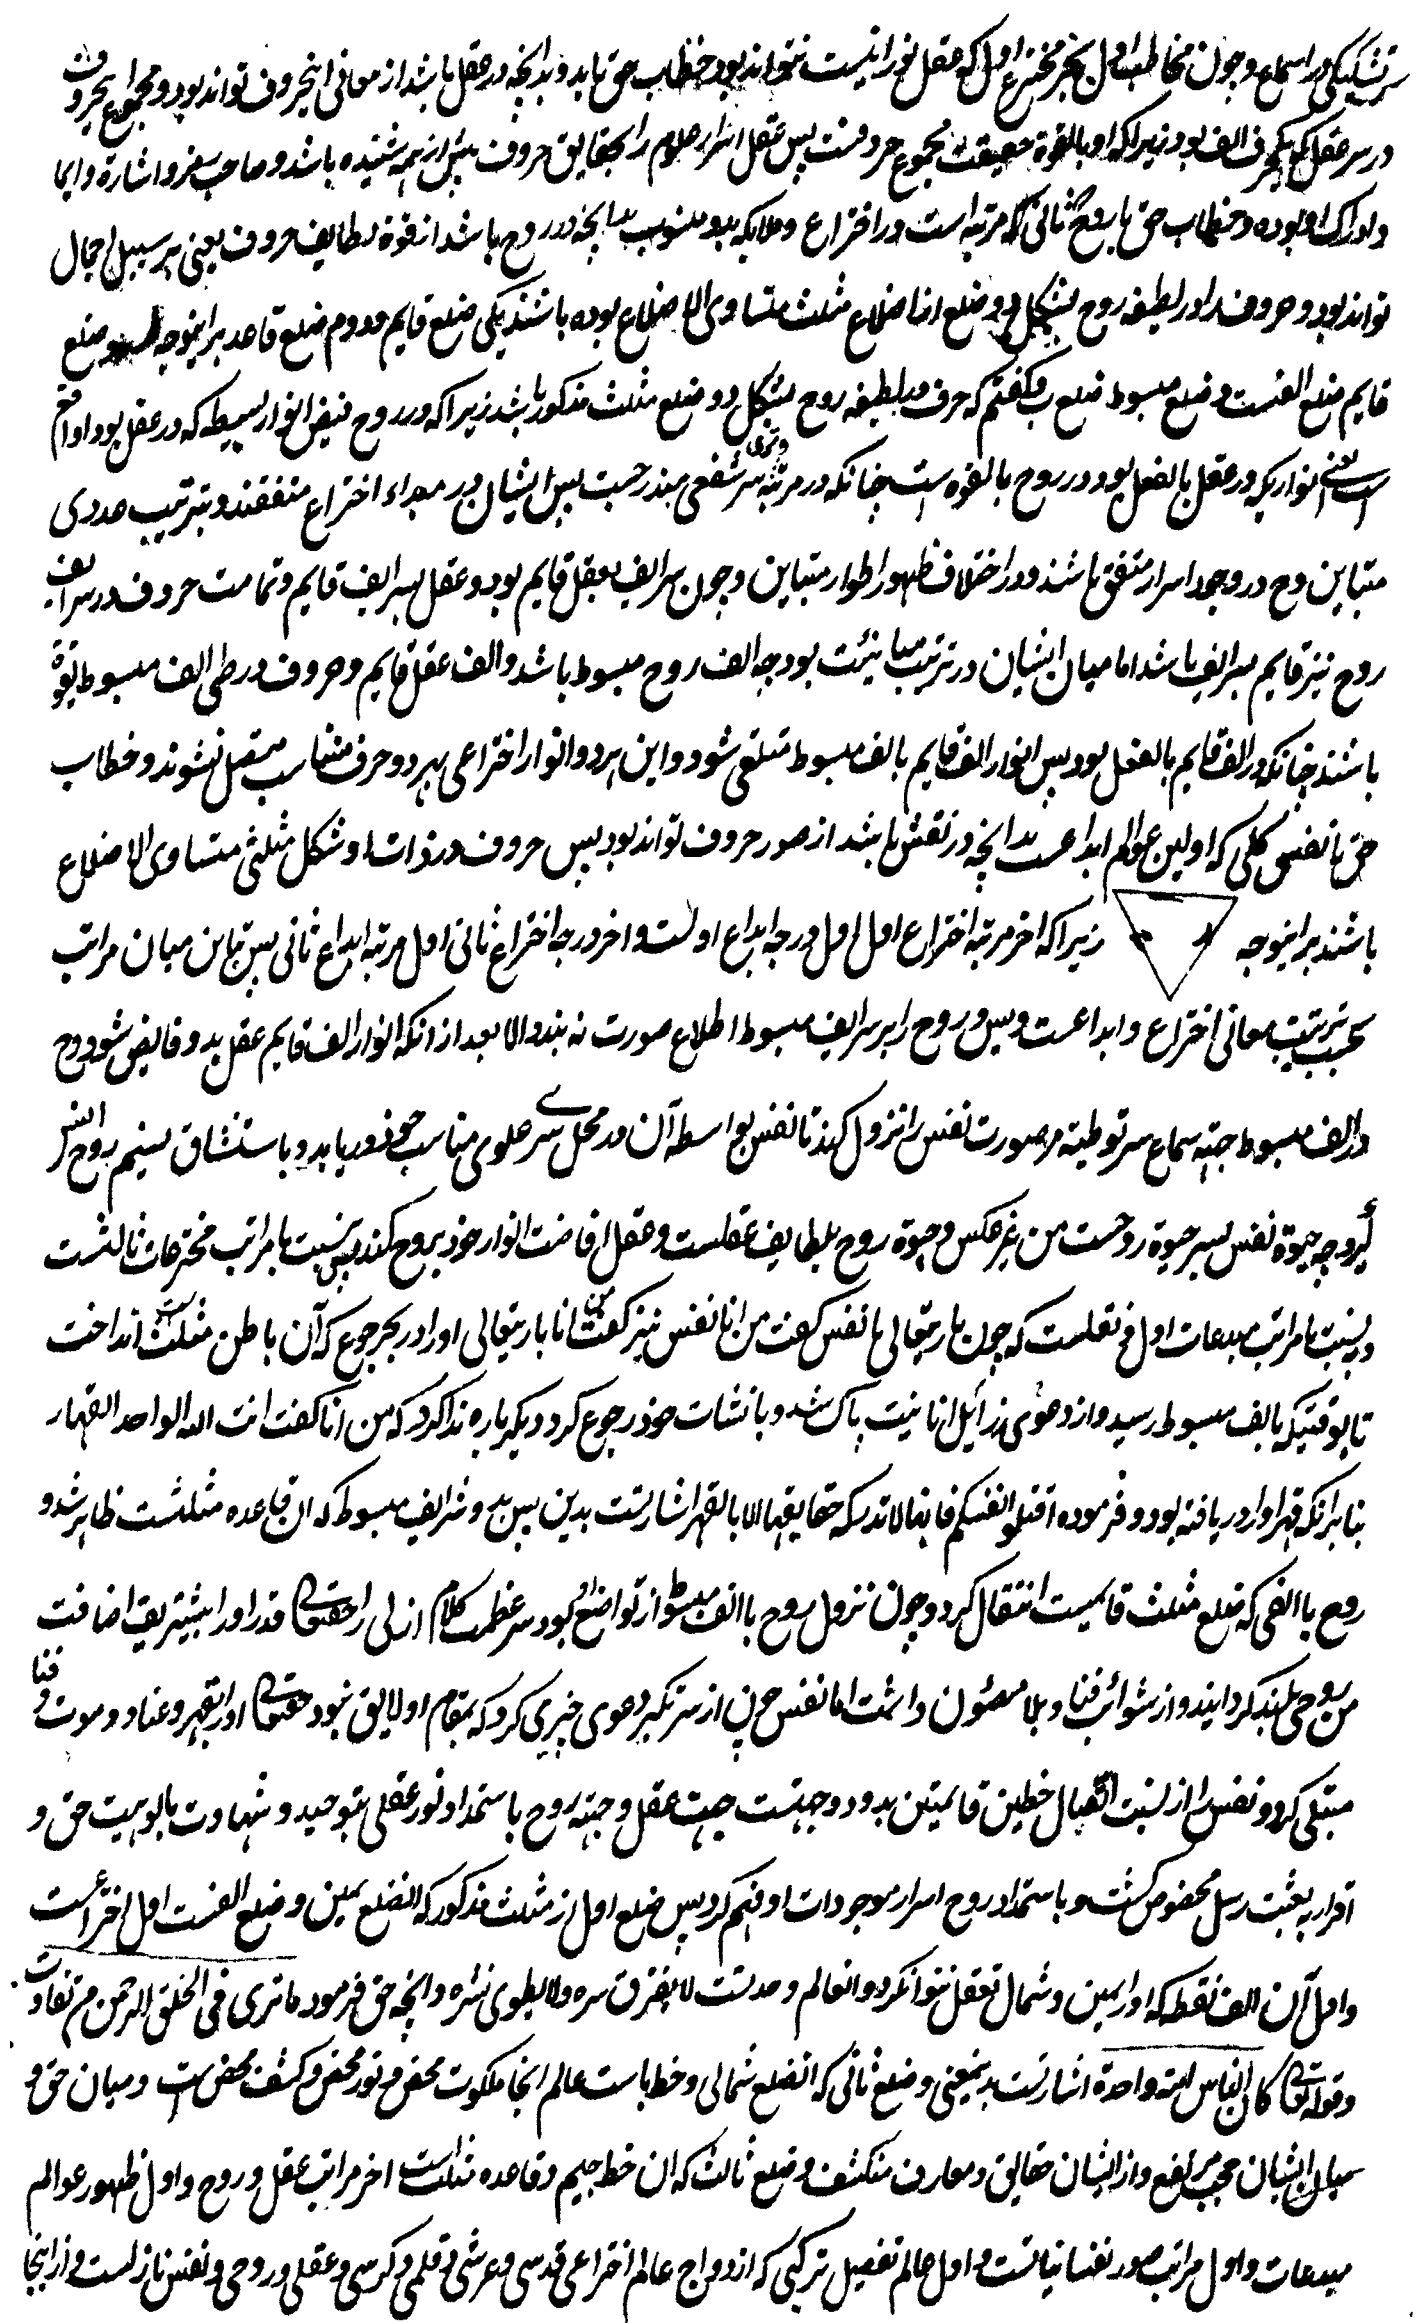 سر تشکیکی در اسماع و چون مخاطب اول بجز مخترع اول که عقل نورانیست نتواند بود خطاب حق باید و بدانچه در عقل باشد از معانی اینحروف تواند بود و مجموع حروف
در سر عقل یکحرف الف بود زیرا که او بالقوة حقیقت مجموع حروفست پس عقل اسرار علوم را بحقایق حروف پیش از همه شنیده باشد و صاحب رمز و اشارة و ایما
و ادراک او بوده و خطاب حق با روح ثانی که مرتبه است در اختراع و ملایکه بدو منسوب بدانچه در روح باشد از قوة لطایف حروف یعنی بر سبیل اجمال
تواند بود و حروف را در لطیفه روح بشکل دو ضلع از اضلاع مثلث متساوی الاضلاع بوده باشند یکی ضلع قایم و دوم ضلع قاعد براینوجه ضلع
قایم ضلع الفست و ضلع مبسوط ضلع ب و گفتم که حرف در لطیفه روح بشکل دو ضلع مثلث مذکور باشد زیرا که در روح فیض انوار بسیطه که در عقل بود او
است یعنی انواریکه در عقل بالفعل بود در روح بالقوه است چنانکه در مرتبه وتری سر شفعی مندرجست پس ایشان در مبداء اختراع متفقند و بترتیب عددی
متباین و در وجود اسرار متفق باشند و در اختلاف ظهور اطوار متباین و چون سر الف بعقل قایم بود و عقل بسر الف قایم و تمامت حروف در سر الف
روح نیز قایم بسر الف باشد اما میان ایشان در ترتیب مباینت بود چه الف روح مبسوط باشد و الف عقل قایم و حروف در طی الف مبسوط بقوة
باشند چنانکه در الف قایم بالفعل بود پس انوار الف قایم بالف مبسوط متلقی شود و این هر دو انوار اختراعی بهر دو حرف متناسب متصل نشوند و خطاب
حق با نفس کلی که اولین عوالم ابداعست بدانچه در نفس باشد از صور حروف تواند بود پس حروف در ذات او شکل مثلثی متساوی الاضلاع
باشند براینوجه زیرا که اخر مرتبه اختراع اول اول درجه ابداع اولست و اخر درجه اختراع ثانی اول مرتبه ابداع ثانی پس تباین میان مراتب
بحسب ترتیب معانی اختراع و ابداعست و بس و روح را بر سر الف مبسوط اطلاع صورت نه بندد الا بعد از انکه انوار الف قایم عقل بدو فایض شود و روح
در الف مبسوط جهته سماع سر توطیه مر صورت نفس را نزول کند تا نفس بواسطه آن در محل سر علوی مناسب خود دریابد و باستنشاق نسیم روح انس
گیرد چه حیوة نفس بسر حیوة روحست من غیر عکس و حیوة روح بلطایف عقلست و عقل افاضت انوار خود بروح کند پس نسبت با مراتب مخترعات ثالثست
و بنسبت با مراتب مبدعات اول و نقلست که چون باریتعالی با نفس گفت من انا نفس نیز گفت من انا باریتعالی او را در بحر جوع که آن باطن مثلث است انداخت
تا بوقتیکه بالف مبسوط رسید و از دعوی رذایل انانیت پاک شد و با نشات خود رجوع کرد دیگر باره ندا کرد که من انا گفت انت الله الواحد القهار
بنا بر انکه قهر او را دریافته بود و فرموده اقتلوا انفسکم فانها لا تدرک حقایقها الا بالقهر اشارتست بدین پس بدو سر الف مبسوط که ان قاعده مثلثست ظاهر شد و
روح با الفی که ضلع مثلث قایمست انتقال کرد و چون نزول روح با الف مبسوط از تواضع او بود سر عظمت کلام ازلی را حقتعالی قدر او را بتشریف اضافت
من روحی بلند گردانید و از شوائب فنا و بلا مصئون داشت اما نفس چون از سر تکبر دعوی چیزی کرد که بمقام او لایق نبود حقتعالی او را بقهر و عناد و موت و فنا
مبتلی کرد و نفس را از نسبت اتصال خطین قایمتین بدو دو جهتست جهت عقل و جهته روح باستمداد نور عقلی بتوحید و شهادت بالوهیت حق و
اقرار ببعثت رسل مخصوص گشت و باستمداد روح اسرار موجودات او فهم کرد پس ضلع اول از مثلث مذکور که انضلع یمین و ضلع الفست اول اختراعست
و اول آن الف نقطه که او را یمین و شمال تعقل نتوان کرد و انعالم وحدتست لا یفترق سره ولا یطوی نشره و انچه حق فرمود ما تری فی الخلق الرحمن من تفاوت
و قوله تعالی کان الناس امة واحدة اشارتست بدینمعنی و ضلع ثانی که انضلع شمالی و خط باست عالم انجا ملکوت محض و نور محض و کشف محض است و میان حق و
میان ایشان حجب مرتفع و از ایشان حقایق و معارف منکشف و ضلع ثالث که ان خط جیم و قاعده مثلث است اخر مراتب عقل و روح و اول ظهور عوالم
مبدعات و اول مراتب صور نفسانیاتست و اول عالم تفصیل ترکیبی که ازدواج عالم اختراعی قدسی و عرشی و قلمی و کرسی و عقلی و روحی و نفس نازلست و از اینجا